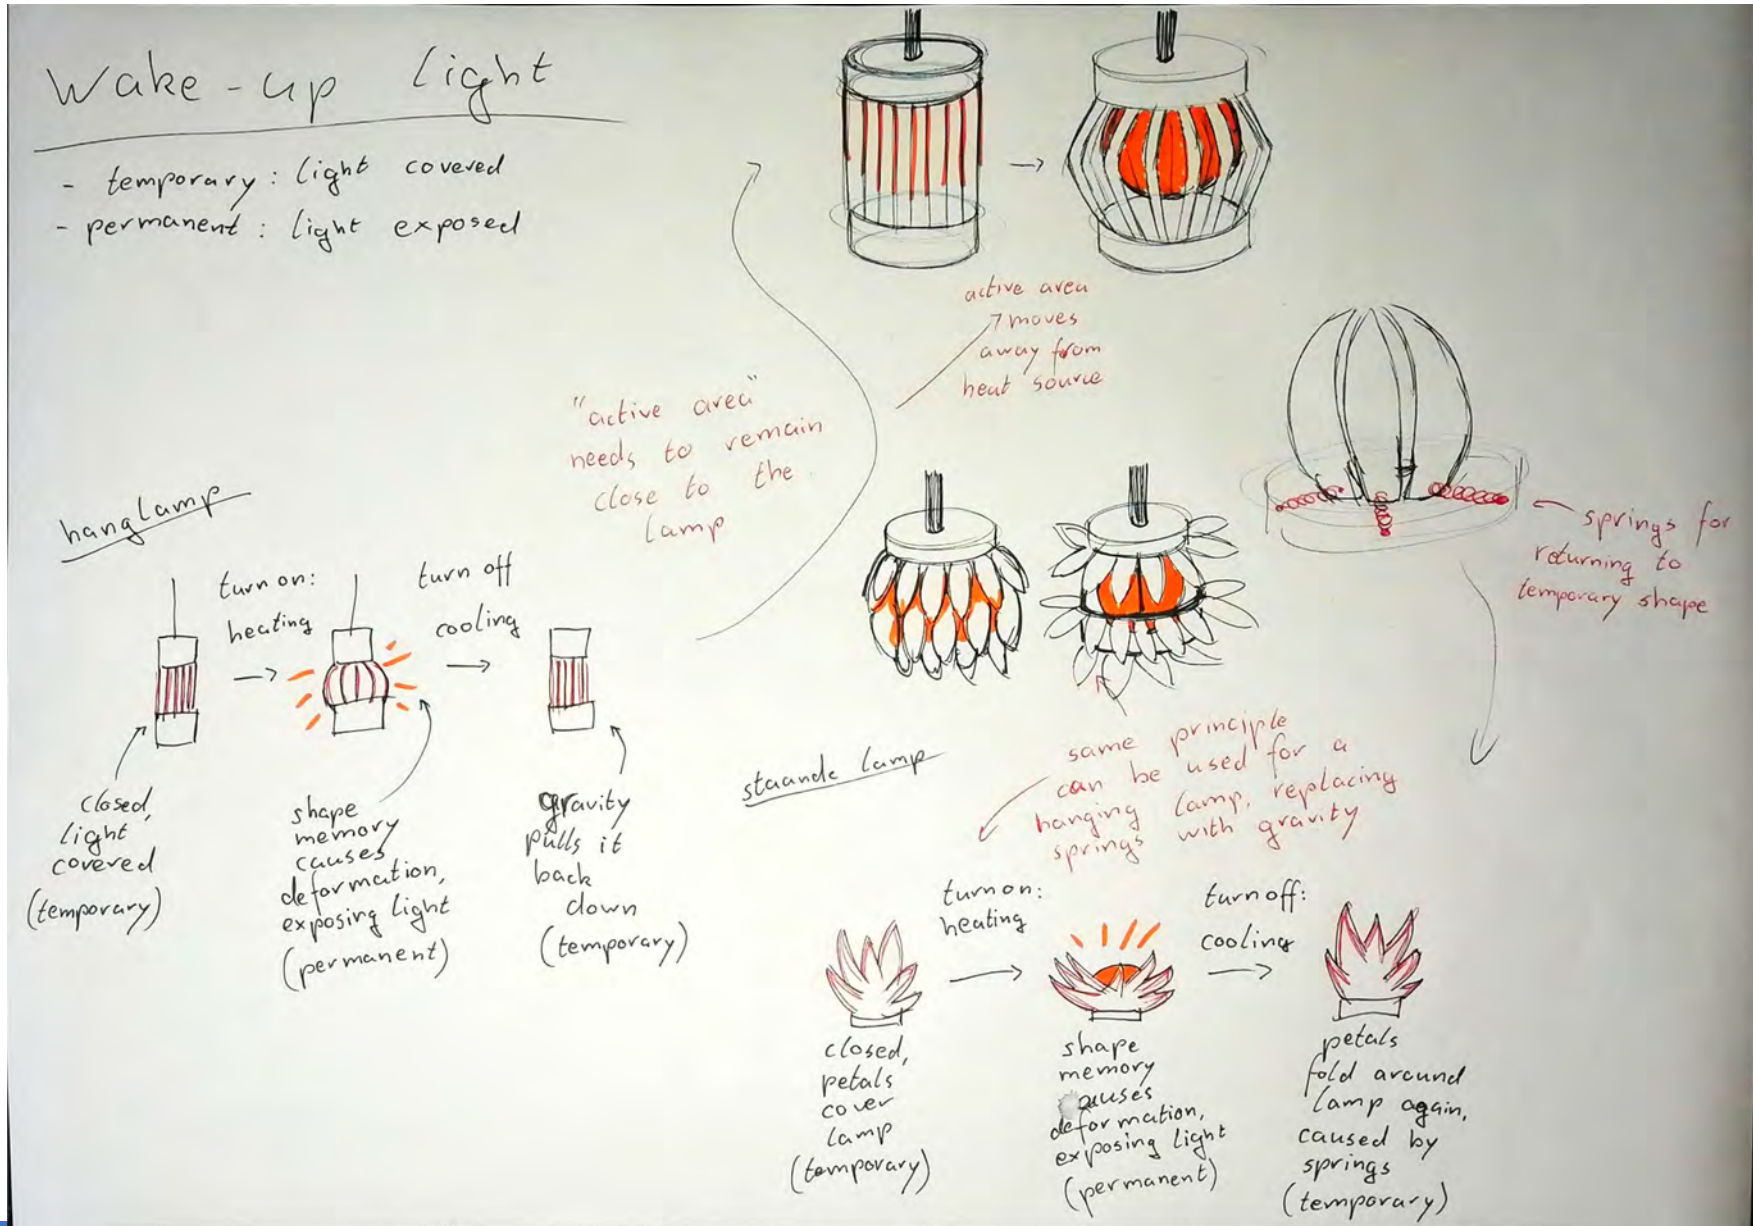 Wake-up light
- temporary: light covered
- permanent: light exposed
active area
moves
away from
heat source
"active area"
needs to remain
close to the
lamp
springs for
returning to
temporary shape
hanglamp
turn on:
heating
turn off
cooling
closed,
light
covered
(temporary)
shape
memory
causes
deformation,
exposing light
(permanent)
gravity
pulls it
back
down
(temporary)
same principle
can be used for a
hanging lamp, replacing
springs with gravity
staande lamp
turn on:
heating
turn off:
cooling
closed,
petals
cover
lamp
(temporary)
shape
memory
causes
deformation,
exposing light
(permanent)
petals
fold around
lamp again,
caused by
springs
(temporary)